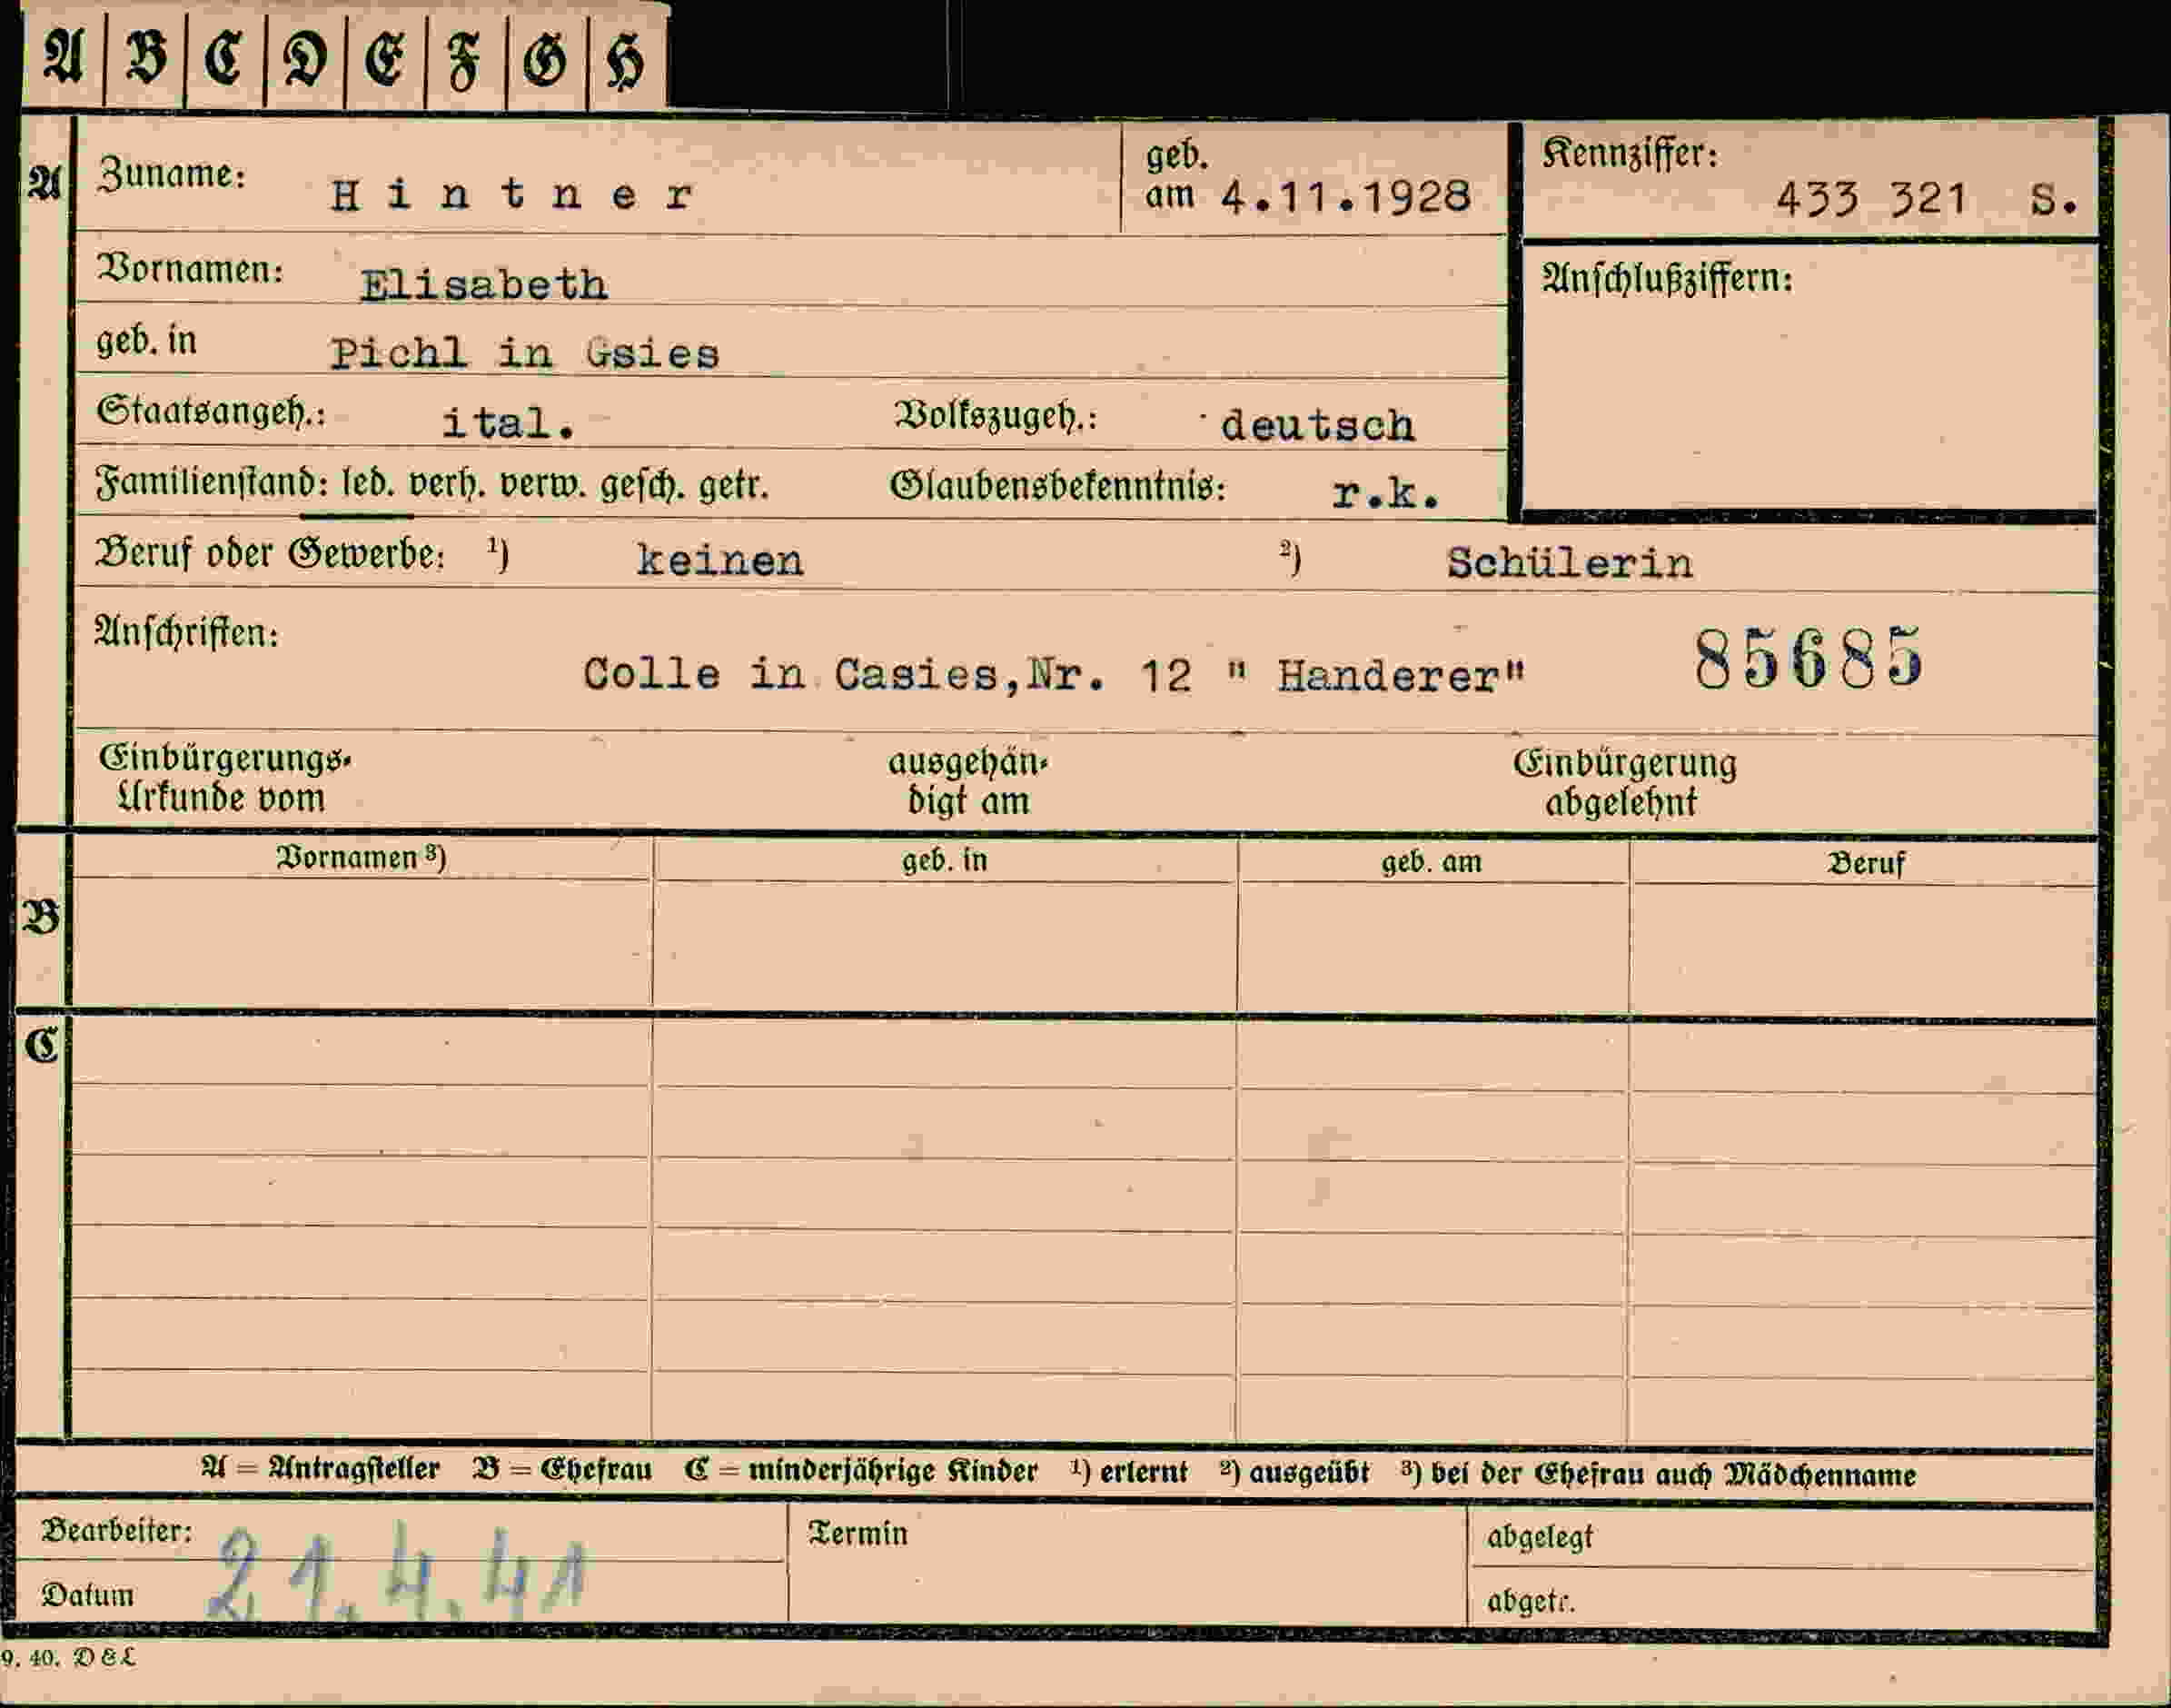 A B C D E F G H
A Zuname: Hintner geb. am 4.11.1928 Kennziffer: 433 321 S.
Vornamen: Elisabeth Anschlußziffern:
geb. in Pichl in Gsies
Staatsangeh.: ital. Volkszugeh.: deutsch
Familienstand: led. verh. verw. gesch. getr. Glaubensbekenntnis: r.k.
Beruf oder Gewerbe: ¹) keinen ²) Schülerin
Anschriften: Colle in Casies,Nr. 12 " Handerer" 85685
Einbürgerungs- ausgehän- Einbürgerung
Urkunde vom digt am abgelehnt
Vornamen ³) geb. in geb. am Beruf
B
C
A = Antragsteller B = Ehefrau C = minderjährige Kinder ¹) erlernt ²) ausgeübt ³) bei der Ehefrau auch Mädchenname
Bearbeiter: Termin abgelegt
Datum 21.4.41 abgetr.
9. 40. D & L